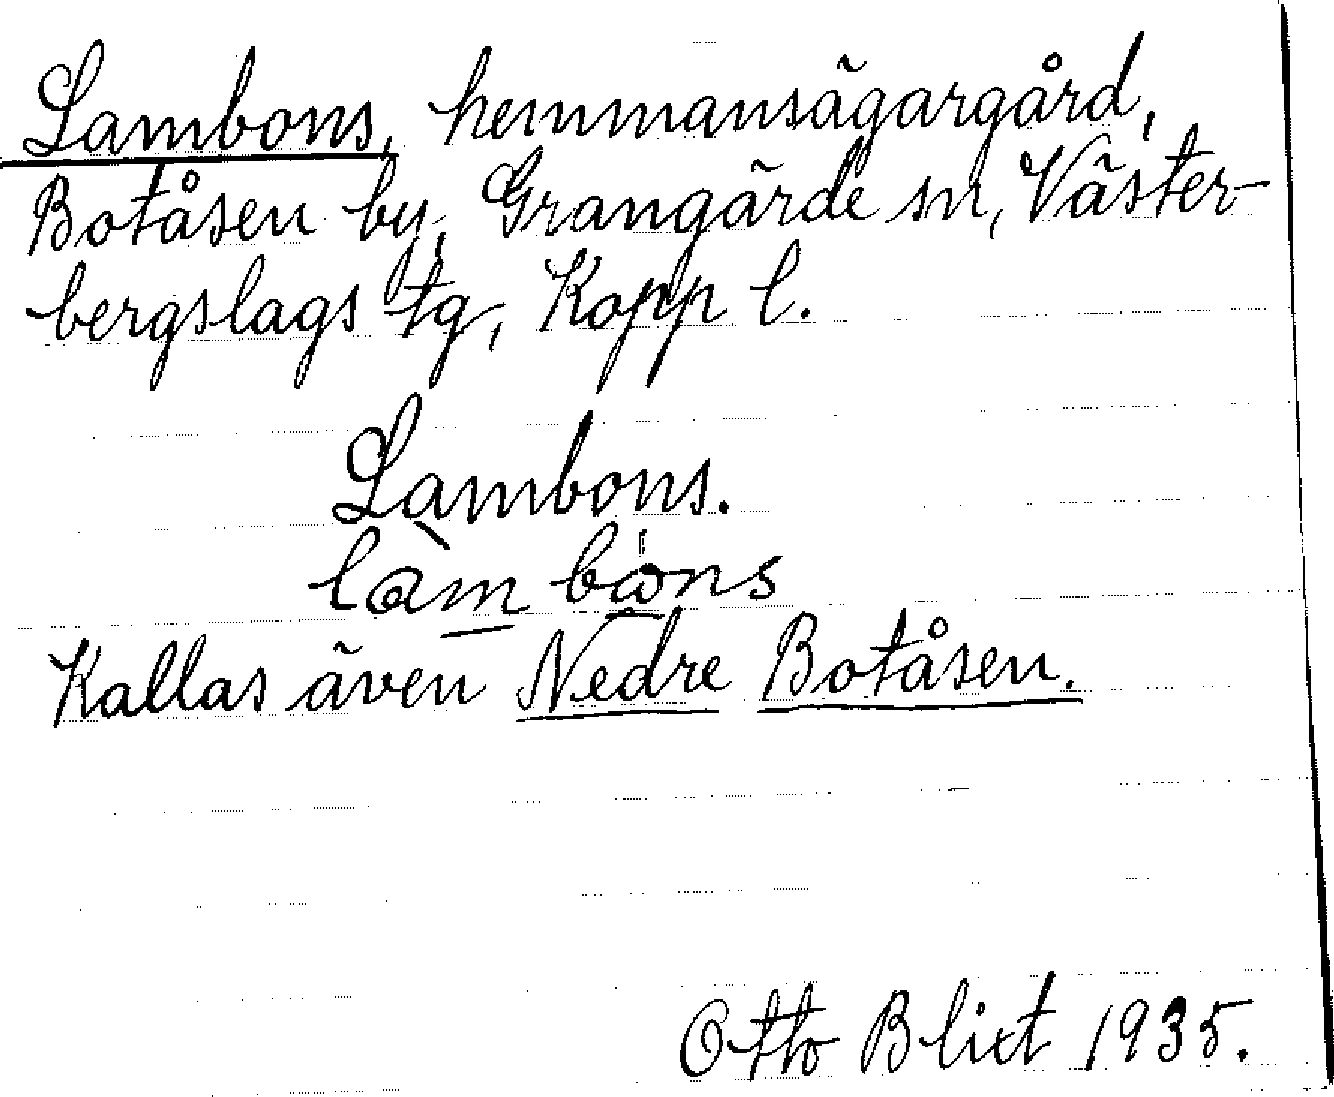 Lambons, hemmansägargård,
Botåsen by, Grangärde sn, Väster-
bergslags tg, Kopp l.
Lambons.
Kallas även Nedre Botåsen.
Otto Blixt 1935.